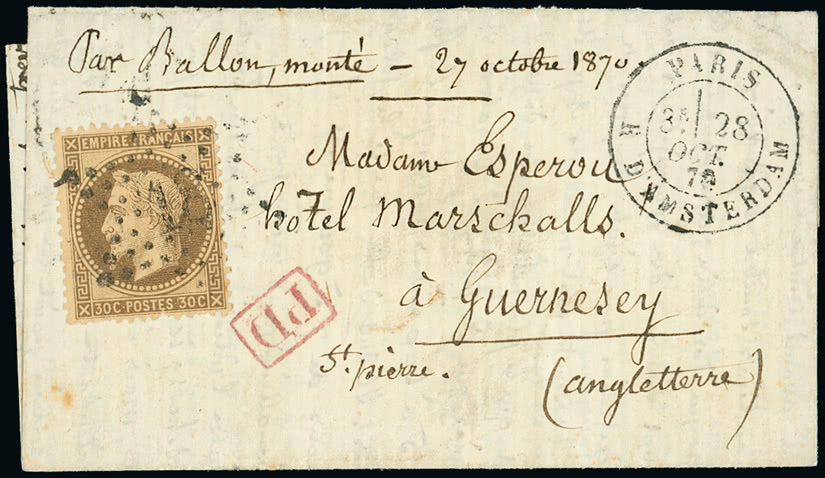 Par Ballon, monté — 27 octobre 1870
PARIS
3E 28
OCT.
70
R D'AMSTERDAM
EMPIRE FRANÇAIS
30C·POSTES·30C
Madame Esperou
hotel Marschalls.
à Guernesey
St. pierre.
(angletterre)
PD